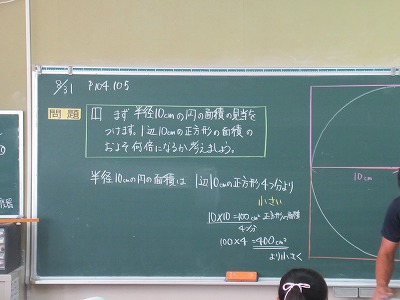 8/31 P104 105
問題
1 まず 半径10cmの円の面積の見当を
つけます。1辺10cmの正方形の面積の
およそ何倍になるか考えましょう。
半径10cmの円の面積は 1辺10cmの正方形4つ分より
小さい
10×10=100cm² 正方形の面積
4つ分
100×4=400cm²
より小さく
10cm